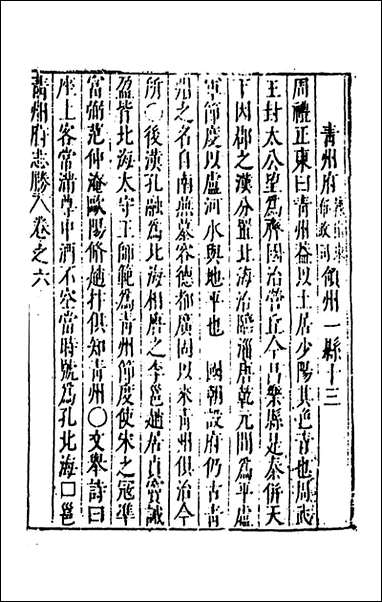 青州府 領州一縣十三
周禮正東曰青州益以土居少陽其色青也周武
王封太公望為齊國治營丘今昌樂縣是秦併天
下因郡之漢分置北海治臨淄唐乾元間為平盧
軍節度以盧河水與地平也 國朝設府仍古青
州之名自南燕慕容德都廣固以來青州俱治今
所○後漢孔融為北海相唐之李邕趙居貞竇誡
盈皆北海太守王師範為青州節度使宋之寇準
富弼范仲淹歐陽脩趙抃俱知青州○文舉詩曰
座上客常滿尊中酒不空當時號為孔北海□邕
青州府志勝 卷之六